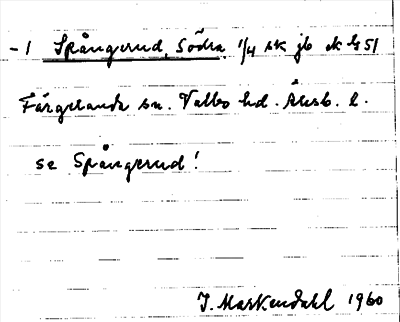 -1 Spångerud, Södra 1/4 sk jb ek bl 51
Färgelanda sn. Valbo hd. Älvsb. l.
se Spångerud!
I. Markendahl 1960